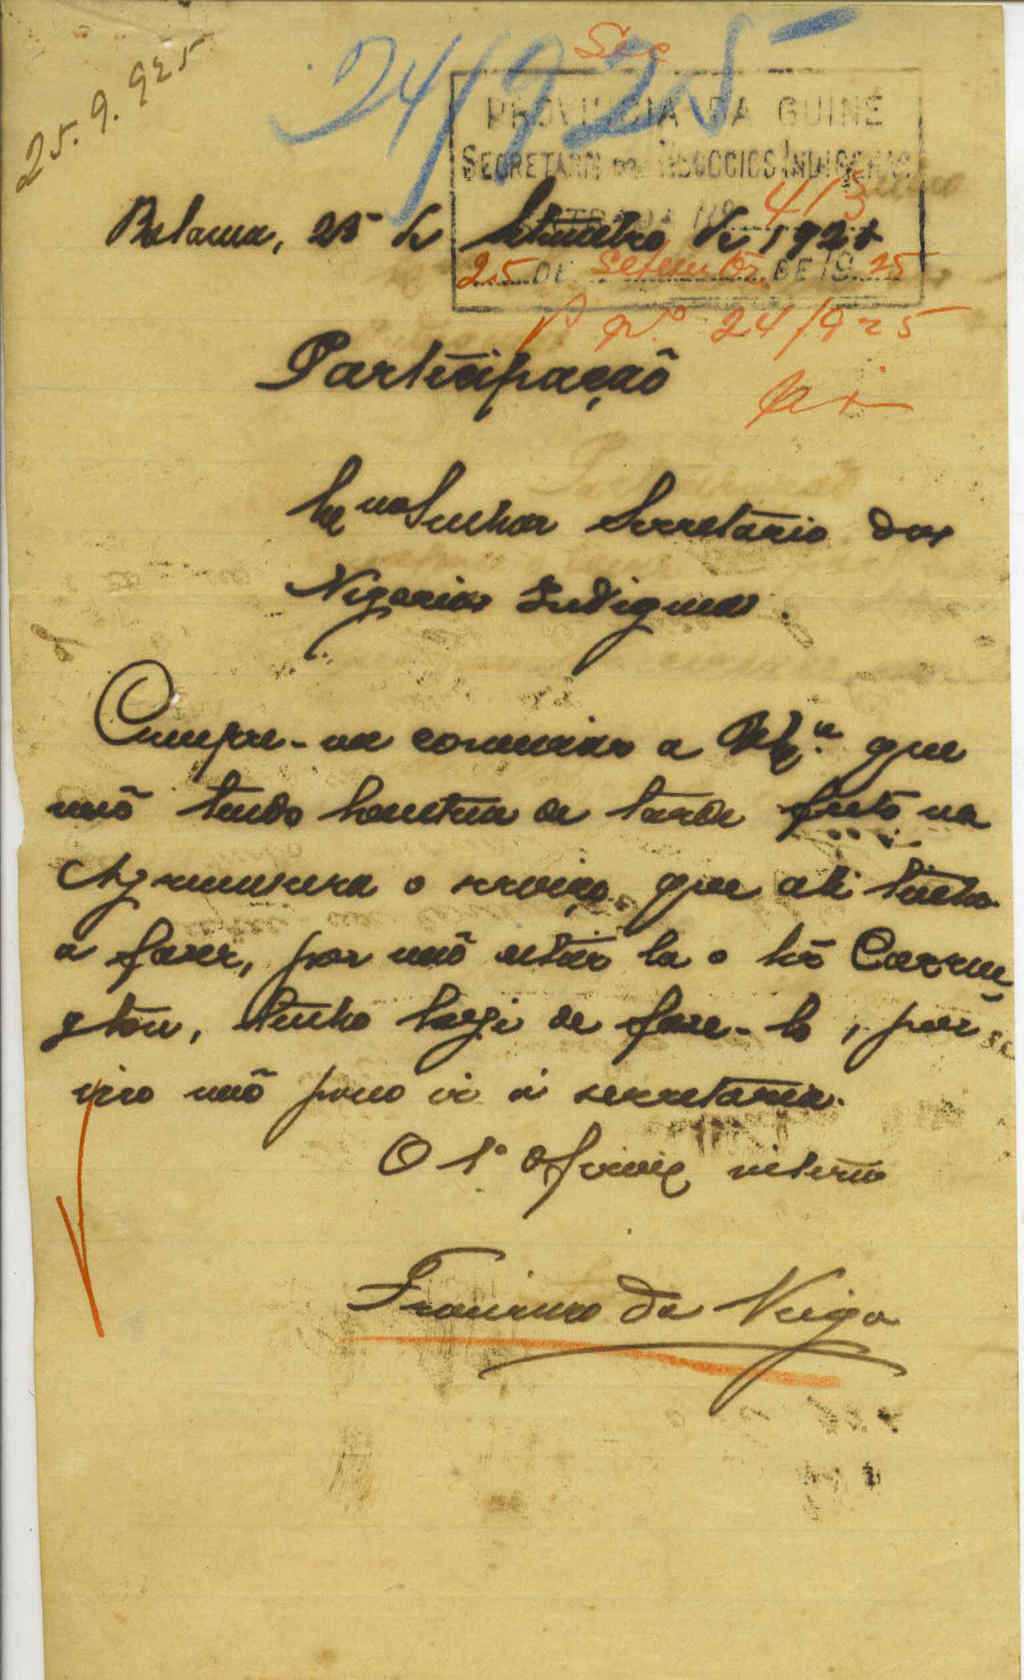 25.9.925
24/925
Sec
PROVINCIA DA GUINÉ
SECRETARIA DOS NEGOCIOS INDIGENAS
ENTRADA Nº 413
25 DE Setembro DE 19 25
Bolama, 25 de Setembro de 1925
P Nº 24/925
Participação
Exmo Senhor Secretario dos
Negocios Indigenas.
Cumpre-me comunicar a V. Exª que
não tendo hontem de tarde feito na
Agrimensura o serviço que ali tinha
a fazer, por não estár la o Snr Carrin
gton, tenho hoje de faze-lo, por
isso não posso ir á secretaria.
O 1º Oficial interino
Francisco da Veiga